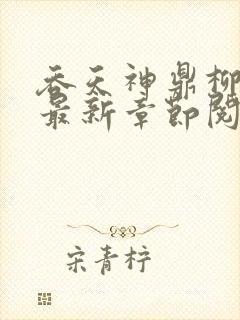 吞天神鼎柳
最新章节阅
宋青柠